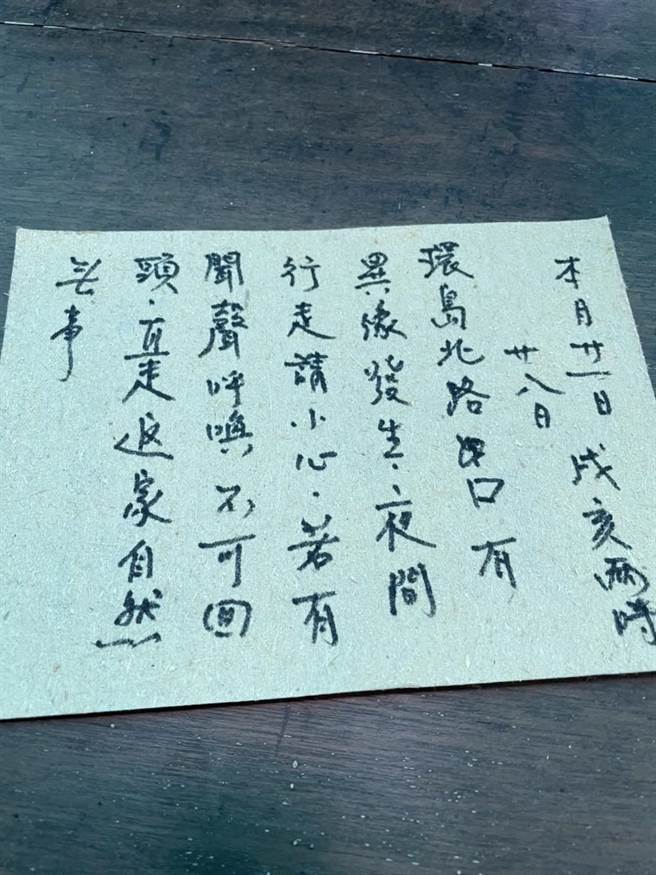 本月廿一日戌亥兩時
廿八日
環島北路口有
異緣發生.夜間
行走請小心.若有
聞聲呼喚不可回
頭.直走返家自然
無事